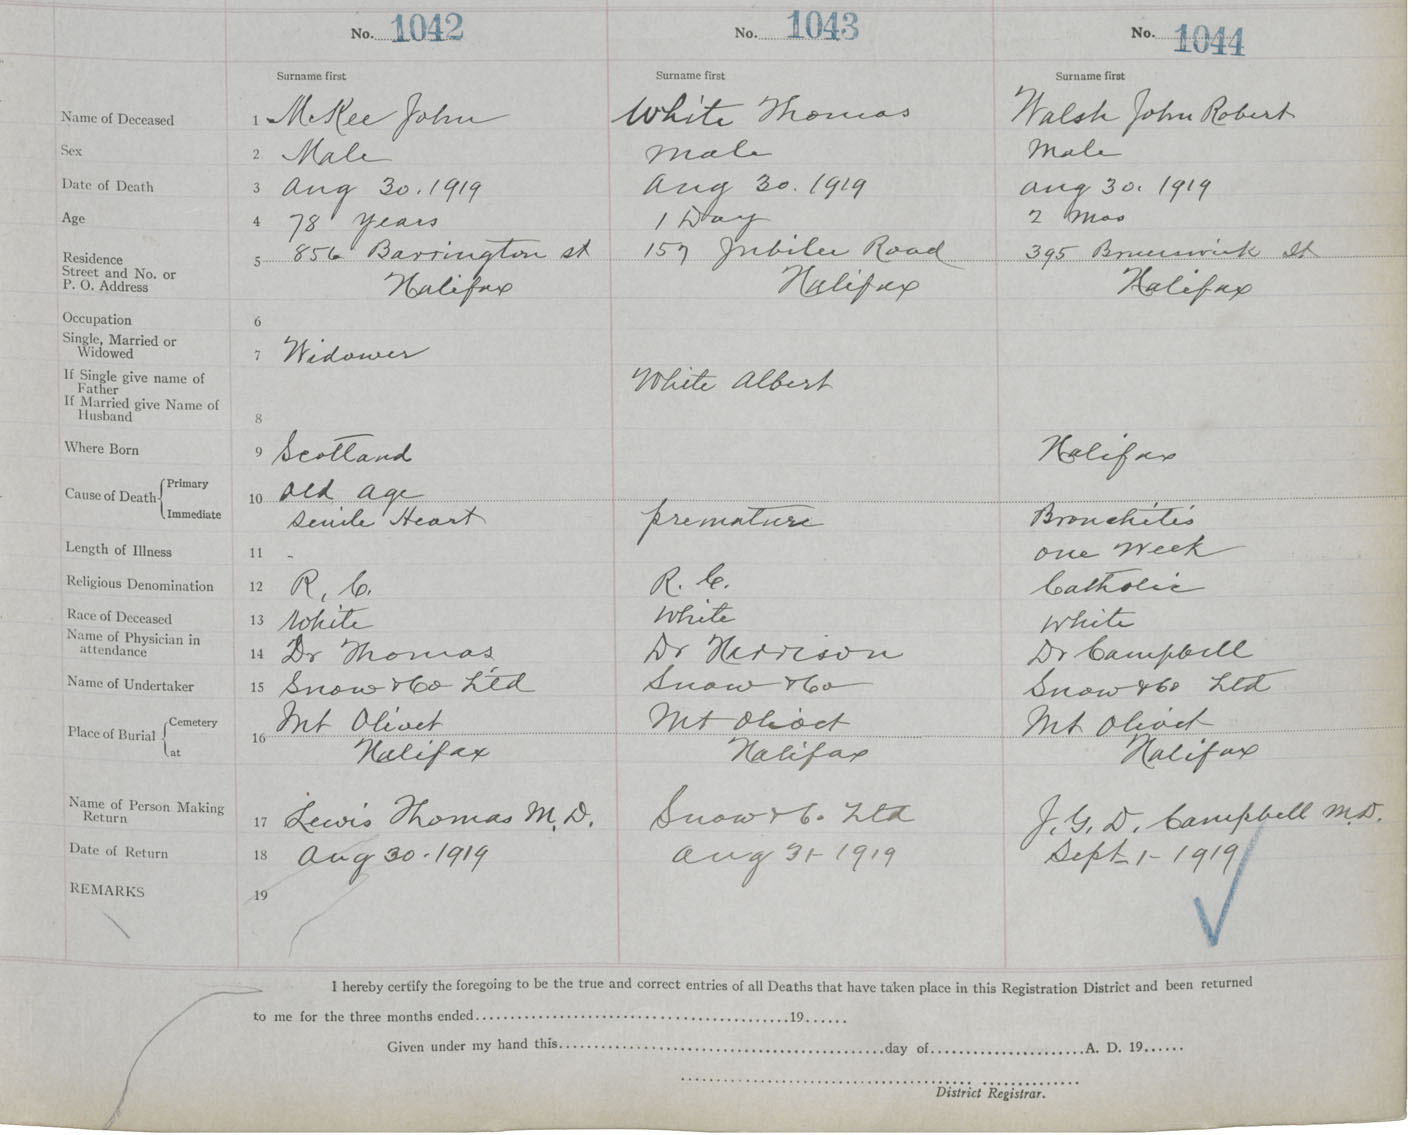 No. 1042 No. 1043 No. 1044
Surname first Surname first Surname first
Name of Deceased 1 McKee John White Thomas Walsh John Robert
Sex 2 Male male Male
Date of Death 3 Aug 30. 1919 Aug 30. 1919 Aug 30. 1919
Age 4 78 years 1 Day 2 Mos
Residence
Street and No. or
P. O. Address
5 856 Barrington st 157 Jubilee Road 395 Brunswick St
Halifax Halifax Halifax
Occupation 6
Single, Married or
Widowed 7 Widower
If Single give name of
Father
White Albert
If Married give Name of
Husband 8
Where Born 9 Scotland Halifax
Cause of Death Primary 10 old age
Immediate senile Heart premature Bronchitis
Length of Illness 11 - one Week
Religious Denomination 12 R. C. R. C. Catholic
Race of Deceased 13 White White White
Name of Physician in
attendance 14 Dr Thomas Dr Harrison Dr Campbell
Name of Undertaker 15 Snow & Co Ltd Snow & Co Snow & Co Ltd
Place of Burial Cemetery 16 Mt Olivet Mt Olivet Mt Olivet
at Halifax Halifax Halifax
Name of Person Making
Return 17 Lewis Thomas M. D. Snow & Co Ltd J. G. D. Campbell M.D.
Date of Return 18 Aug 30 - 1919 Aug 31 - 1919 Sept 1 - 1919
REMARKS 19
I hereby certify the foregoing to be the true and correct entries of all Deaths that have taken place in this Registration District and been returned
to me for the three months ended..........19......
Given under my hand this..........day of..........A. D. 19......
District Registrar.